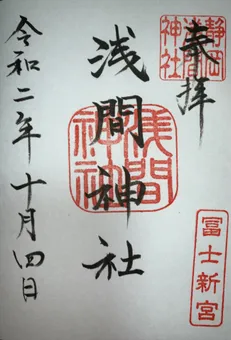 奉拝
静岡
浅間
神社
富士新宮
浅間神社
浅間
神社
令和二年十月四日